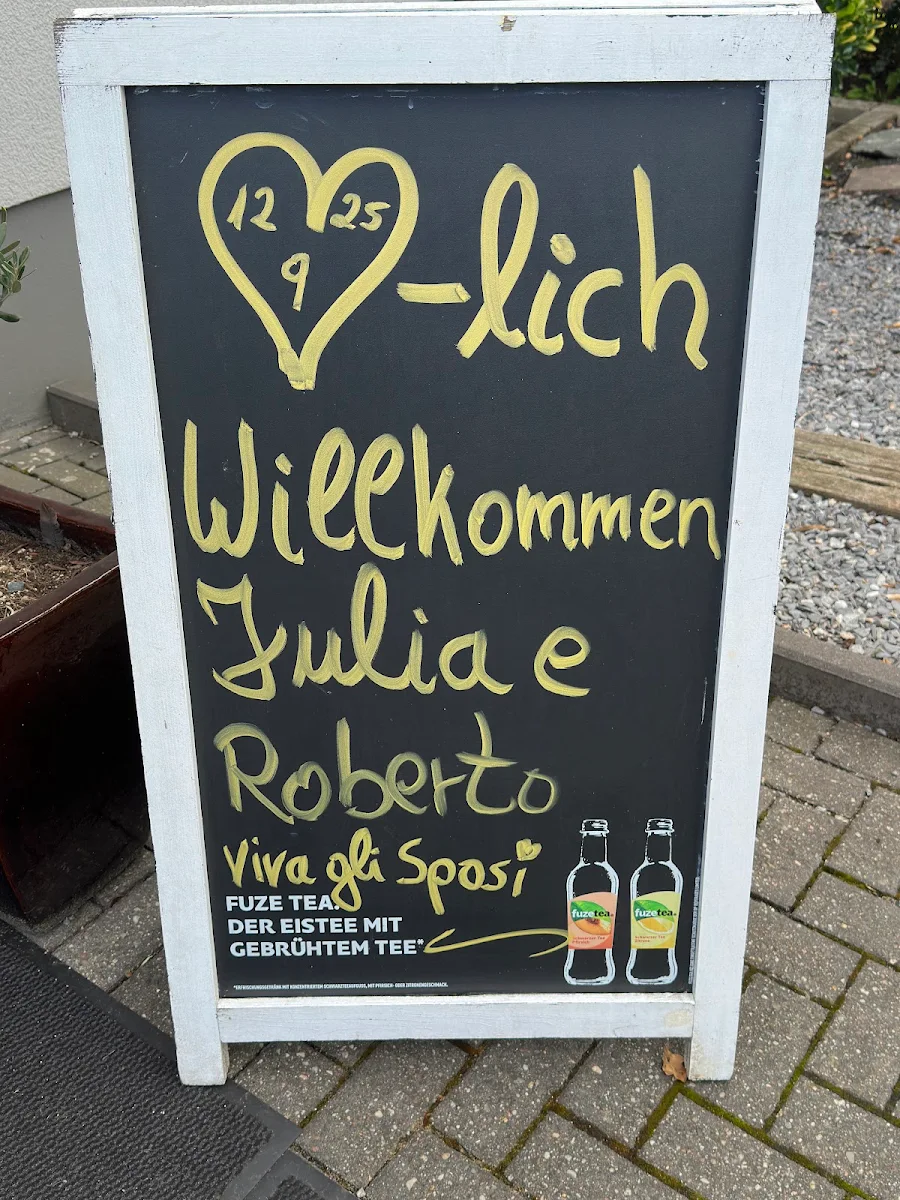 12 25
9
-lich
Willkommen
Julia e
Roberto
viva gli Sposi
FUZE TEA.
DER EISTEE MIT
GEBRÜHTEM TEE*
fuzetea
fuzetea
*ERFRISCHUNGSGETRÄNK MIT KONZENTRIERTEM SCHWARZTEEAUFGUSS, MIT PFIRSICH- ODER ZITRONENGESCHMACK.